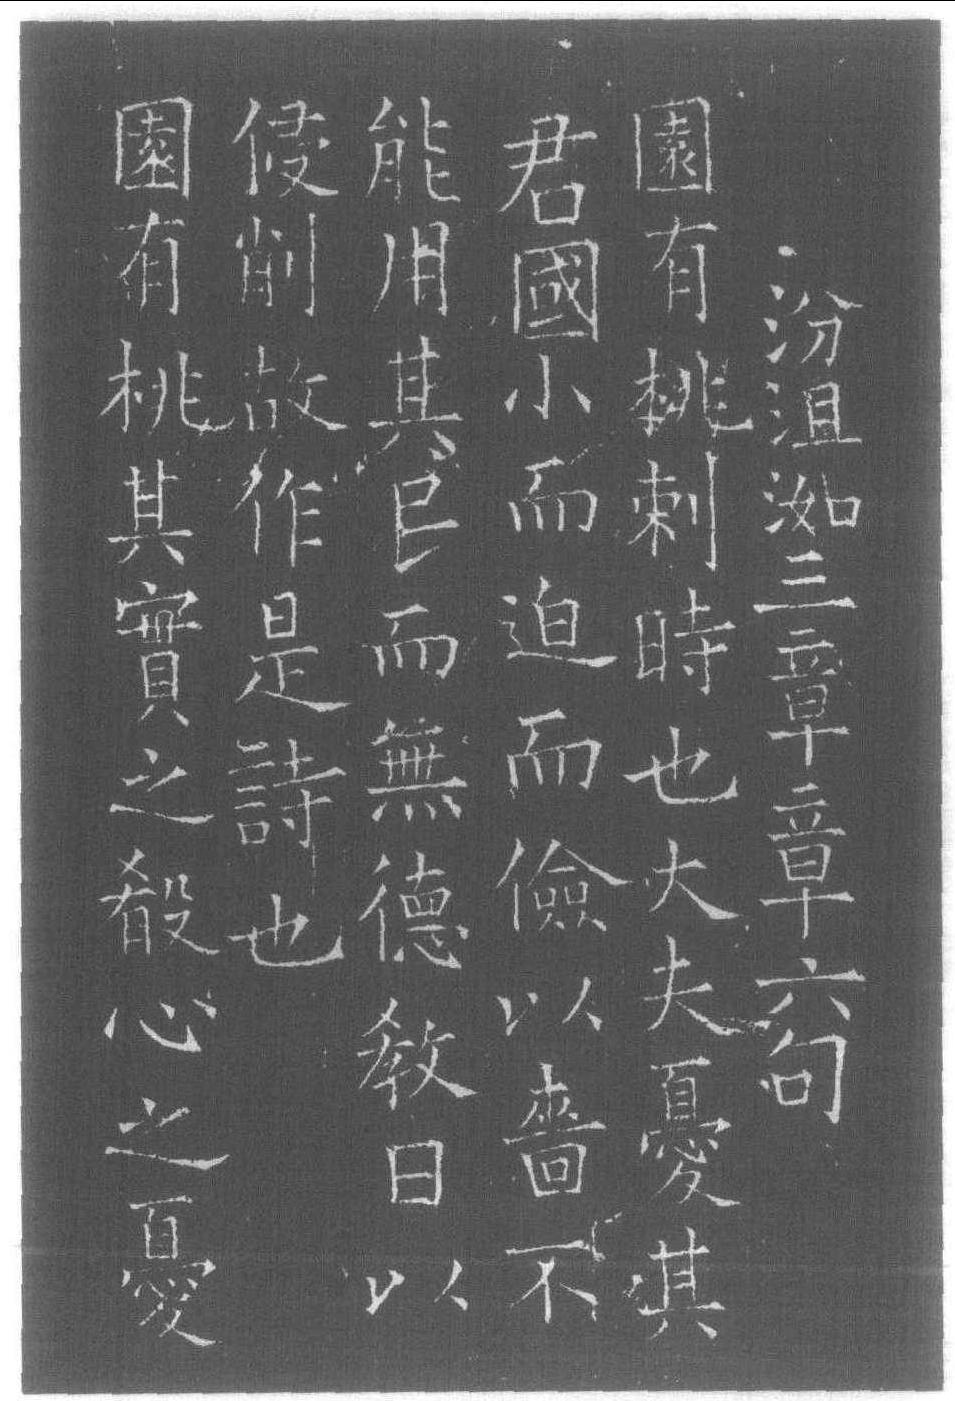 汾沮洳三章章六句
園有桃刺時也大夫憂其
君國小而迫而儉以嗇不
能用其民而無德教日以
侵削故作是詩也
園有桃其實之殽心之憂